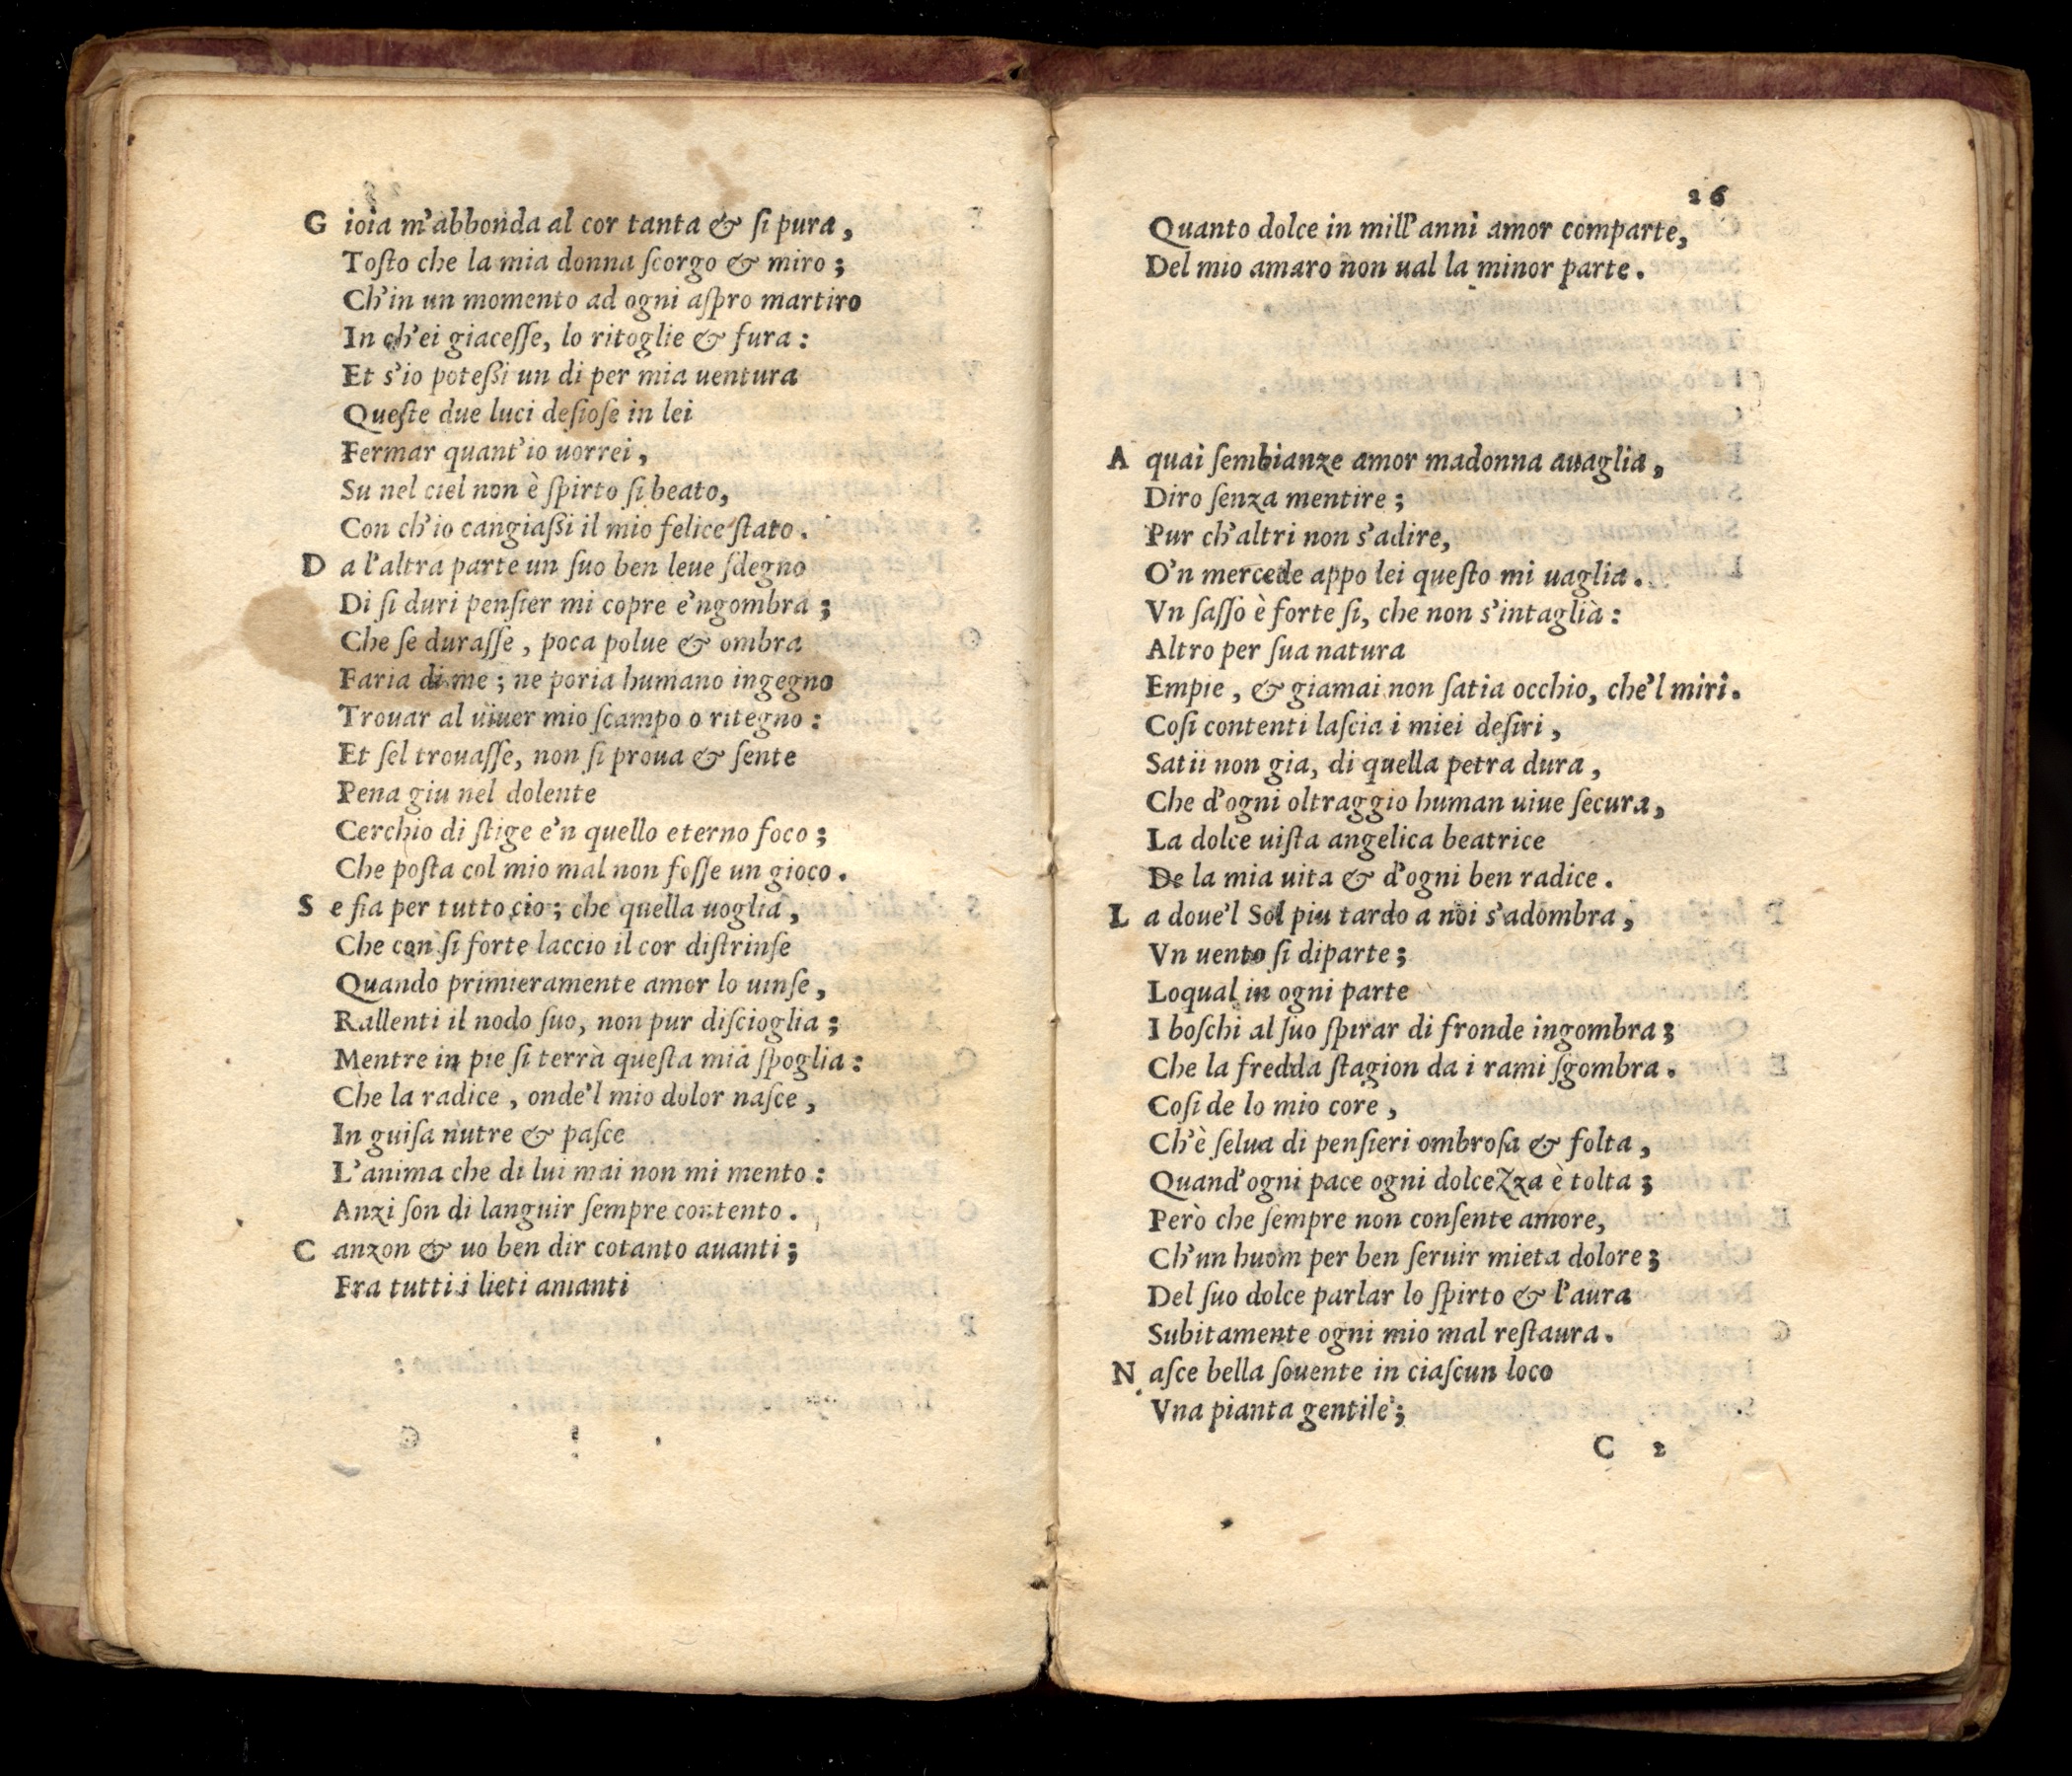 G ioia m'abbonda al cor tanta & ſi pura,
Toſto che la mia donna ſcorgo & miro;
Ch'in un momento ad ogni aſpro martiro
In ch'ei giaceſſe, lo ritoglie & fura:
Et s'io poteßi un di per mia uentura
Queſte due luci deſioſe in lei
Fermar quant'io uorrei,
Su nel ciel non è ſpirto ſi beato,
Con ch'io cangiaßi il mio felice ſtato.
D a l'altra parte un ſuo ben leue ſdegno
Di ſi duri penſier mi copre e'ngombra;
Che ſe duraſſe, poca polue & ombra
Faria di me; ne poria humano ingegno
Trouar al uiuer mio ſcampo o ritegno:
Et ſel trouaſſe, non ſi proua & ſente
Pena giu nel dolente
Cerchio di ſtige e'n quello eterno foco;
Che poſta col mio mal non foſſe un gioco.
S e fia per tutto cio; che quella uoglia,
Che con ſi forte laccio il cor diſtrinſe
Quando primieramente amor lo uinſe,
Rallenti il nodo ſuo, non pur diſcioglia;
Mentre in pie ſi terrà queſta mia ſpoglia:
Che la radice, onde'l mio dolor naſce,
In guiſa nutre & paſce
L'anima che di lui mai non mi mento:
Anzi ſon di languir ſempre contento.
C anzon & uo ben dir cotanto auanti;
Fra tutti i lieti amanti
26
Quanto dolce in mill'anni amor comparte,
Del mio amaro non ual la minor parte.
A quai ſembianze amor madonna auaglia,
Diro ſenza mentire;
Pur ch'altri non s'adire,
O'n mercede appo lei queſto mi uaglia.
Vn ſaſſo è forte ſi, che non s'intaglià:
Altro per ſua natura
Empie, & giamai non ſatia occhio, che'l miri.
Coſi contenti laſcia i miei deſiri,
Satii non gia, di quella petra dura,
Che d'ogni oltraggio human uiue ſecura,
La dolce uiſta angelica beatrice
De la mia uita & d'ogni ben radice.
L a doue'l Sol piu tardo a noi s'adombra,
Vn uento ſi diparte;
Loqual in ogni parte
I boſchi al ſuo ſpirar di fronde ingombra;
Che la fredda ſtagion da i rami ſgombra.
Coſi de lo mio core,
Ch'è ſelua di penſieri ombroſa & folta,
Quand'ogni pace ogni dolcezza è tolta;
Però che ſempre non conſente amore,
Ch'un huom per ben ſeruir mieta dolore;
Del ſuo dolce parlar lo ſpirto & l'aura
Subitamente ogni mio mal reſtaura.
N aſce bella ſouente in ciaſcun loco
Vna pianta gentile;
C 2